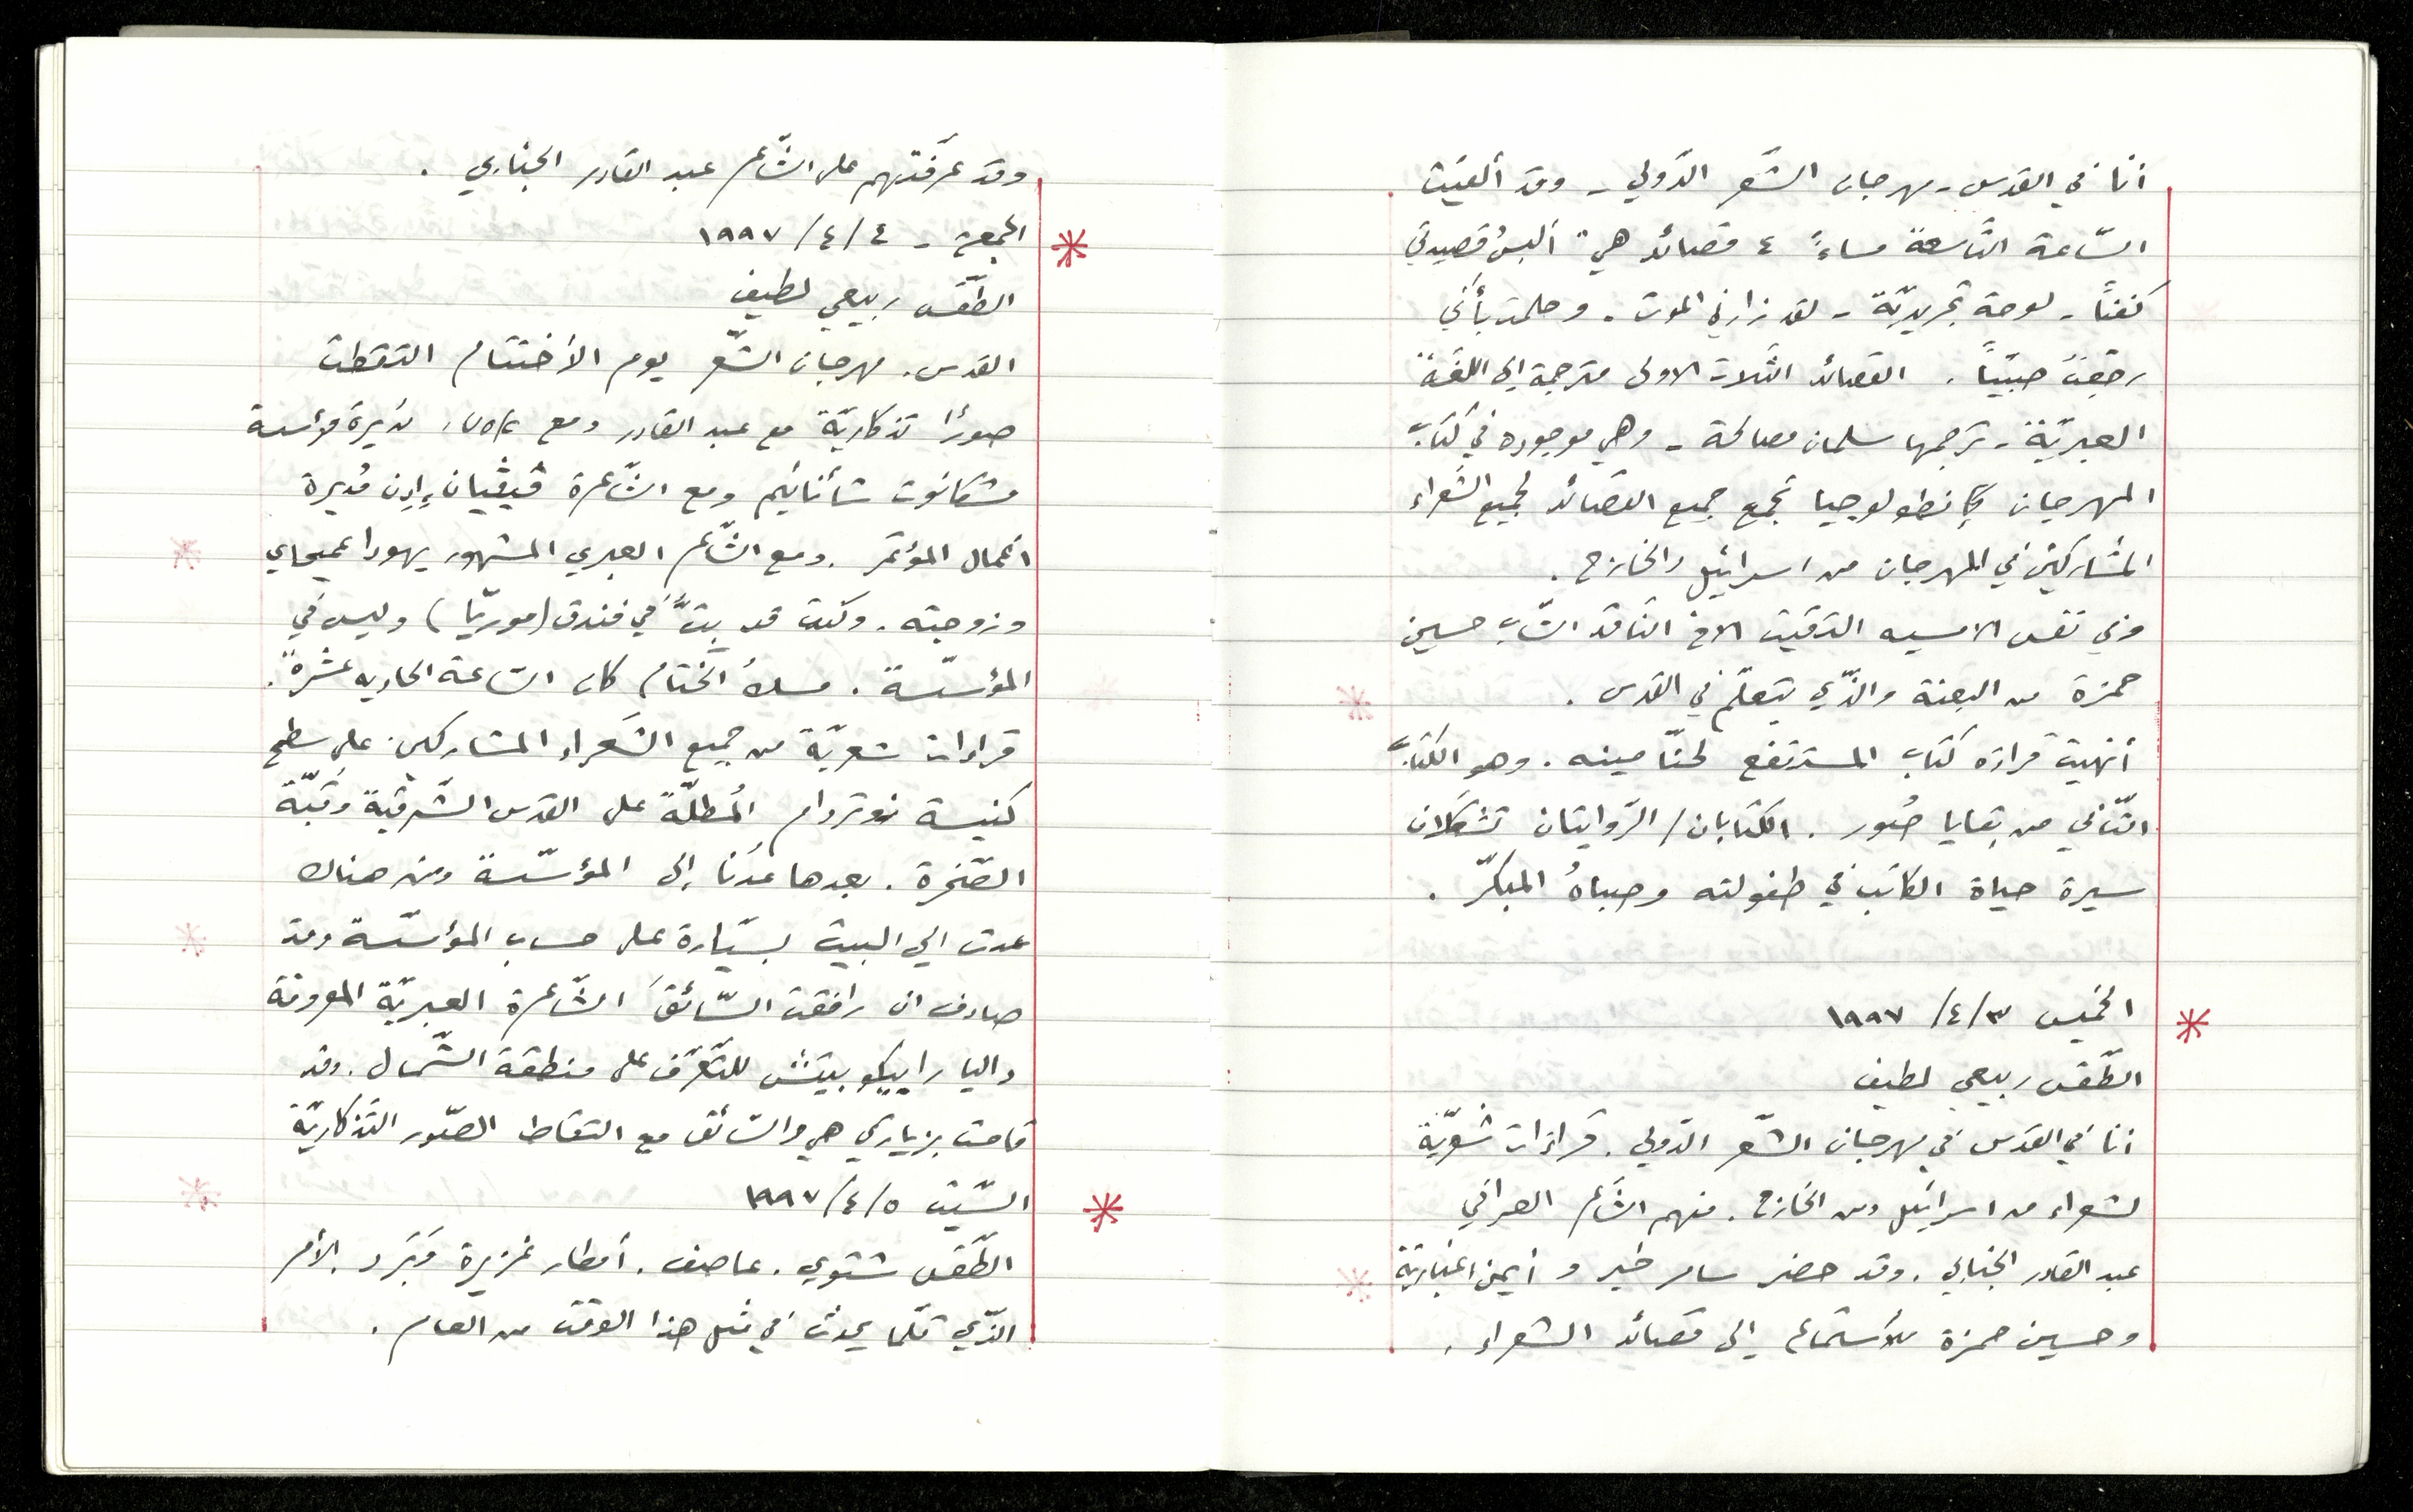 أنا في القدس - مهرجان الشّعر الدّولي - وقد ألقيت
السّاعة التّاسعة مساءً ٤ قصائد هي" ألبسُ قصيدتي
كفناً - لوحة تجريديّة - لقد زارني الموت - وحلمت بأنّي
رجعتُ صبيّاً. القصائد الثّلاث الاولى مترجمة إلى اللغة
العبريّة - ترجمها سلمان مصالحة - وهي موجوده في كتاب
المهرجان كإنطولوجيا تجمع جميع القصائد لجميع الشّعراء
المشاركين في المهرجان من اسرائيل والخارج.
وفي نفس الامسيه التقيت الاخ النّاقد الشّاب حسين
حمزة من البعنة والذّي يتعلّم في القدس.
أنهيت قراءة كتاب المستنقع لحنّا مينه. وهو الكتاب
الثّاني من بقايا صُور. الكتابان/الرّوايتان تشكلان
سيرة حياة الكاتب في طفولته وصباهُ المبكّر.
* الخميس ٣/٤/ ١٩٩٧
الطّقس ربيعي لطيف
انا في القدس في مهرجان الشّعر الدّولي. قراءات شعريّة
لشعراء من اسرائيل ومن الخارج. منهم الشّاعر العراقي
عبد القادر الجنابي. وقد حضر سامر خير و أيمن اغباريّة
وحسين حمزة للأستماع إلى قصائد الشعراء.
وقد عرّفتهم على الشّاعر عبد القادر الجنابي.
* الجمعة - ٤/٤/١٩٩٧
الطّقس ربيعي لطيف
القدس. مهرجان الشّعر يوم الأختتام التقطت
صورًا تذكاريّة مع عبد القادر ومع مديرة مؤسسة
مشكانوت شأنانيم ومع الشّاعرة ڤيڤيان إِدِن مُديرة
اعمال المؤتمر. ومع الشّاعر العبري المشهور يهودا عميحاي
وزوجته. وكنت قد بِتُّ في فندق (موريّا) وليس في
المؤسّسة. مسكُ الختام كان السّاعة الحاديه عشرةً.
قراءات شعريّة من جميع الشّعراء المشاركين على سطح
كنيسة نوتردام المُطلّة على القدس الشّرقيّة وقبّة
الصّخرة. بعدها عُدنا إلى المؤسّسة ومن هناك
عدت الى البيت بسيّارة على حساب المؤسّسة وقد
صادف ان رافقت السّائقَ الشّاعرة العبريّة المعروفة
داليا رابيكوبيتش للتّعرّف على منطقة الشّمال. وقد
قامت بزيارتي هي والسّائق مع التقاط الصّور التّذكاريّة
* السّبت ٥/٤/١٩٩٧
الطّقس شتوي. عاصف. أمطار غزيرة وَبَرَد. الأمر
الذّي قلّما يحدث في مثل هذا الوقت من العام.